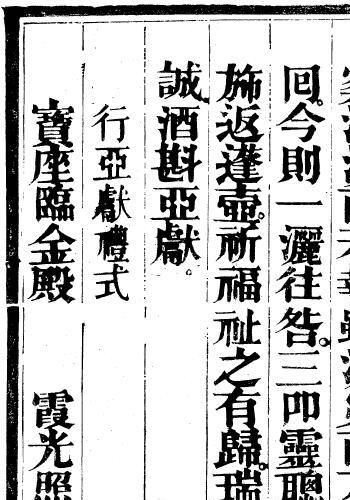 回。今則一灑往咎。三叩靈聰
斾返蓬壺。祈福祉之有歸。瑞
誠酒斟亞獻。
行亞獻禮式
寶座臨金殿　霞光照